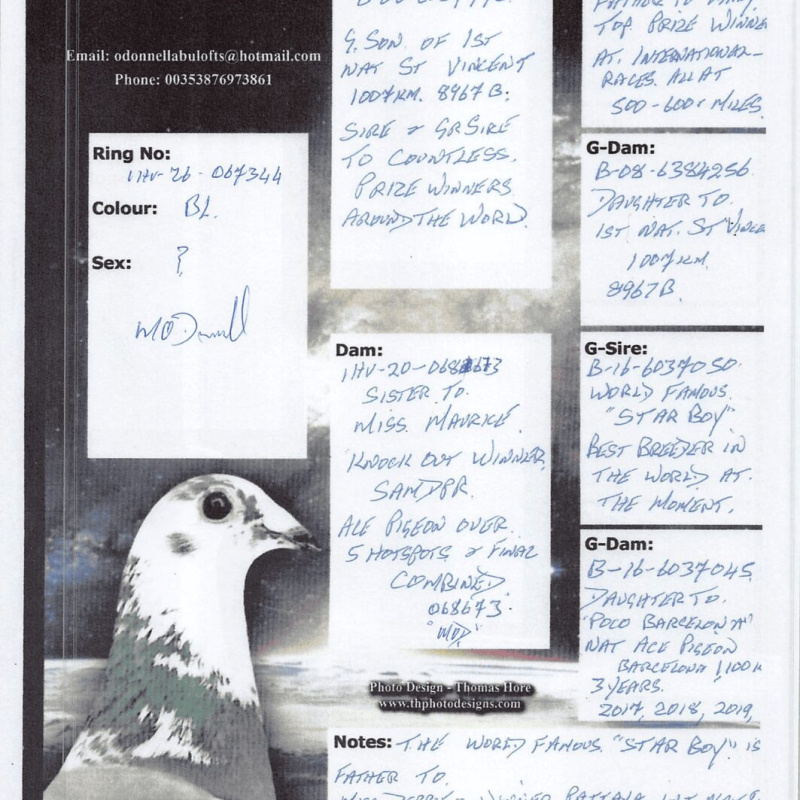 Email: odonnellabulofts@hotmail.com
Phone: 00353876973861
Ring No:
IHU-26-067344
Colour: BL.
Sex: ?
G. SON OF 1ST
NAT ST VINCENT
1007KM. 8967B.
SIRE & GRSIRE
TO COUNTLESS.
PRIZE WINNERS
AROUND THE WORLD.
Dam:
IHU-20-068673
SISTER TO.
MISS. MAURICE.
KNOCK OUT WINNER
SAMDPR.
ACE PIGEON OVER.
5 HOTSPOTS & FINAL
COMBINED
068673.
"MOD"
TOP PRIZE WINNE
AT. INTERNATIONAL-
RACES. ALL AT
500-600 MILES.
G-Dam:
B-08-6384256
DAUGHTER TO.
1ST NAT. ST VINCE
1007KM.
8967B.
G-Sire:
B-16-6037050.
WORLD FAMOUS.
"STAR BOY"
BEST BREEDER IN
THE WORLD AT.
THE MOMENT.
G-Dam:
B-16-6037045
DAUGHTER TO.
"POCO BARCELONA"
NAT ACE PIGEON
BARCELONA 1,100K
3 YEARS.
2017, 2018, 2019,
Photo Design - Thomas Hore
www.thphotodesigns.com
Notes: THE WORLD FAMOUS. "STAR BOY" IS
FATHER TO.